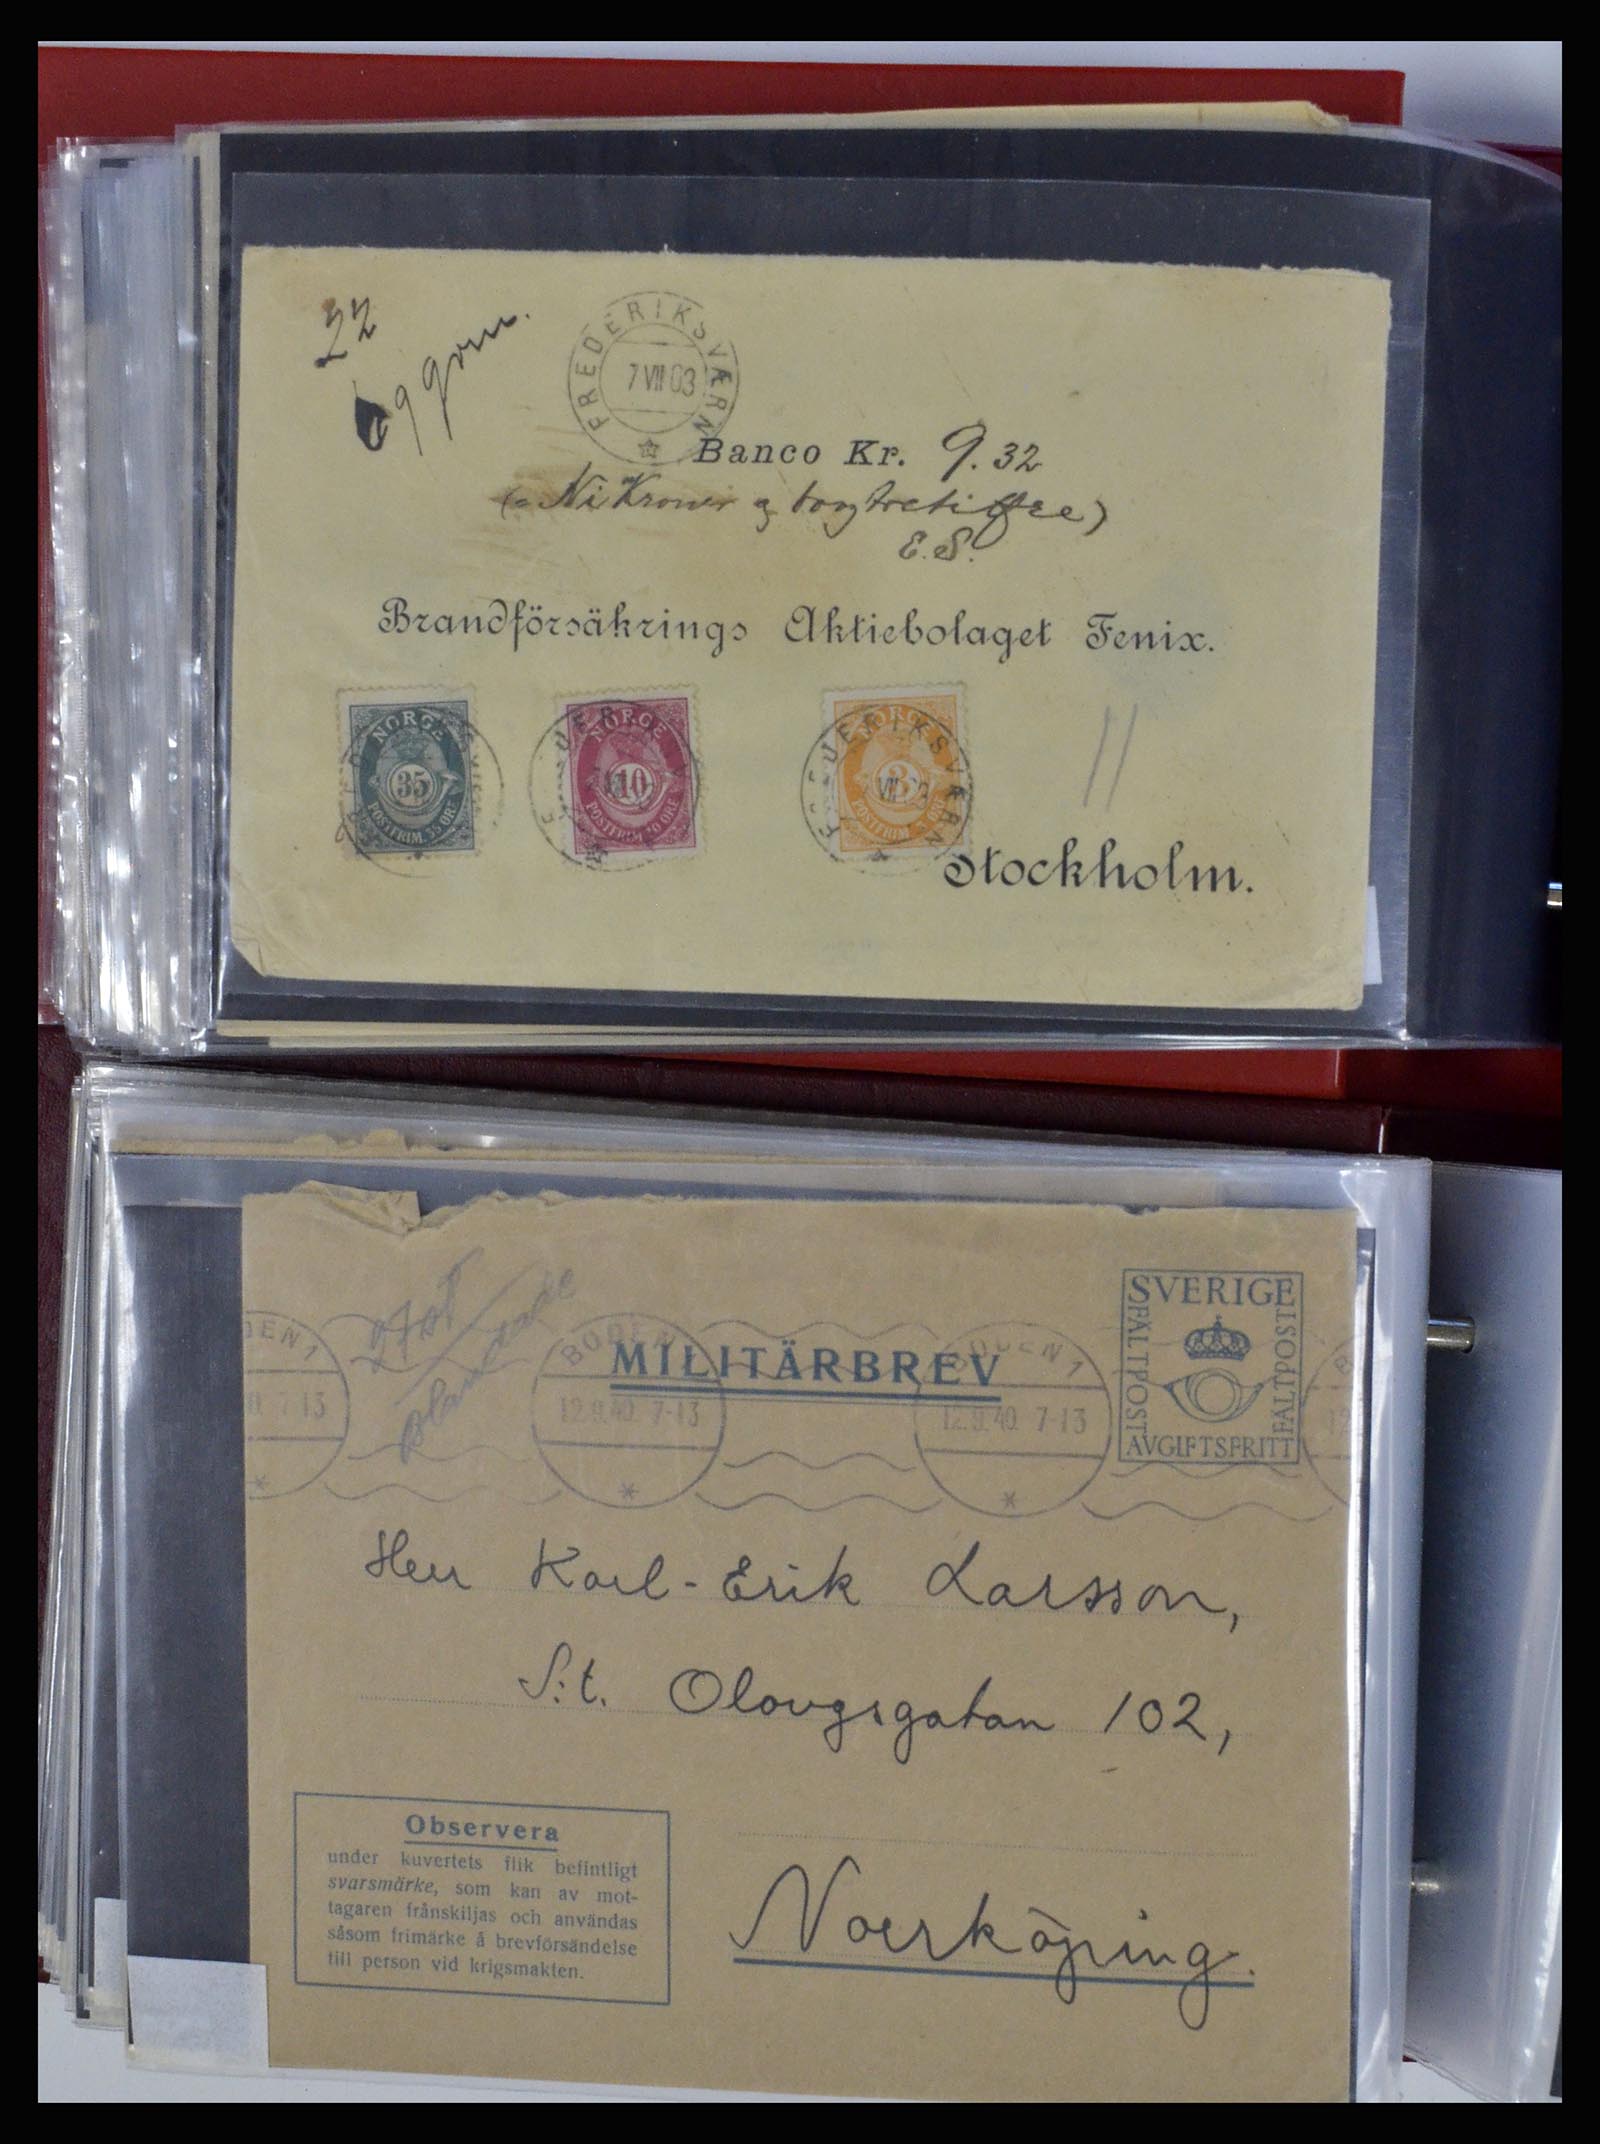 22
FREDERIKSVÆRN
7 VII 03
Banco Kr. 9.32
(= Ni Kroner og
E.S.
Brandförsäkrings Aktiebolaget Fenix.
NORGE
35
POSTFRIM. 35 ØRE
NORGE
10
POSTFRIM. 10 ØRE
NORGE
3
POSTFRIM. 3 ØRE
FREDERIKSVÆRN
11
Stockholm.
SVERIGE
FÄLTPOST
FÄLTPOSTE
AVGIFTSFRITT
BODEN 1
12.9.40. 7-13
BODEN 1
12.9.40. 7-13
MILITÄRBREV
Herr Karl-Erik Larsson,
S:t. Olovgsgatan 102,
Norrköping.
Observera
under kuvertets flik befintligt
svarsmärke, som kan av mot-
tagaren frånskiljas och användas
såsom frimärke å brevförsändelse
till person vid krigsmakten.